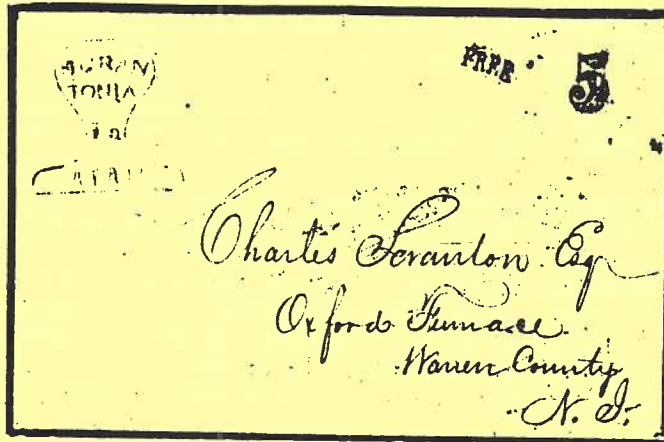 FREE
5
Charles Scranton Esq
Oxford Furnace
Warren County
N. J.